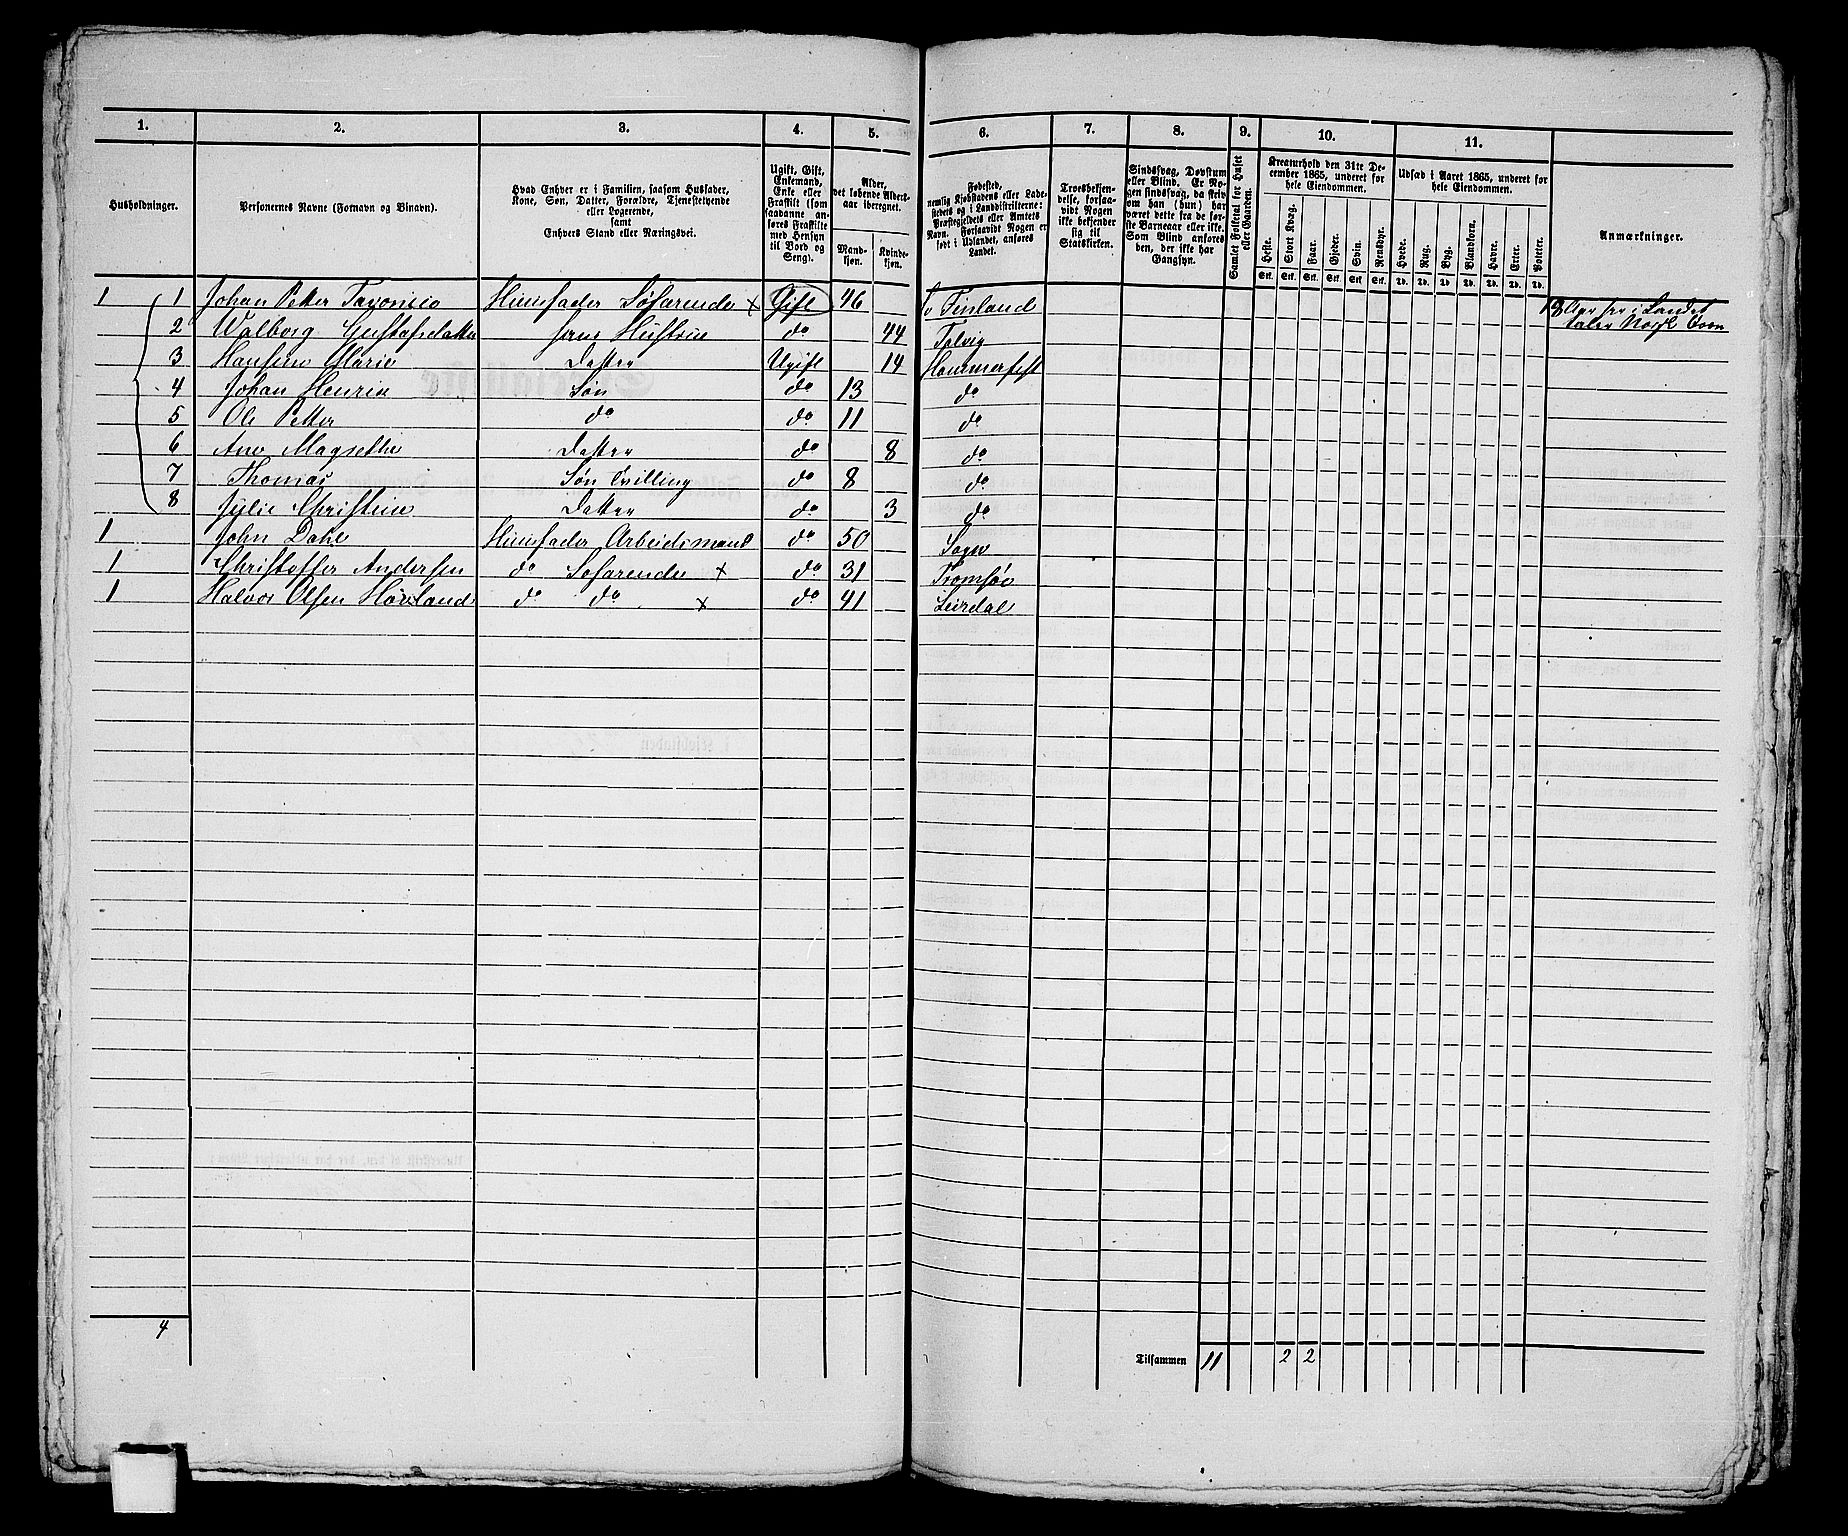 1. 2. 3. 4. 5. 6. 7. 8. 9. 10. 11.
Husholdninger.
Personernes Navne (Fornavn og Binavn).
Hvad Enhver er i Familien, saasom Husfader,
Kone, Søn, Datter, Forældre, Tjenestetyende
eller Logerende,
samt
Enhvers Stand eller Næringsvei.
Ugift, Gift,
Enkemand,
Enke eller
Fraskilt (som
saadanne an-
føres Fraskilte
med Hensyn
til Bord og
Seng).
Alder,
det løbende Alders-
aar iberegnet.
Mand-
kjøn.
Kvinde-
kjøn.
Fødested,
nemlig Kjøbstadens eller Lade-
stedets og i Landdistrikterne:
Præstegjeldets eller Amtets
Navn. Forsaavidt Nogen er
født i Udlandet, anføres
Landet.
Troesbekjen-
delse, forsaa-
vidt Nogen
ikke bekjender
sig til
Statskirken.
Sindssvag, Døvstum
eller Blind. Er No-
gen sindssvag, da skriv
om han (hun) har
været dette fra de før-
ste Barneaar eller ikke.
Som Blind anføres
den, der ikke har
Gangsyn.
Samlet Folketal for Huset
eller Gaarden.
Kreaturhold den 31te De-
cember 1865, underet for
hele Eiendommen.
Heste. Stort Kvæg. Faar. Gjeder. Svin. Rensdyr.
Stk. Stk. Stk. Stk. Stk. Stk.
Udsæd i Aaret 1865, underet for
hele Eiendommen.
Hvede. Rug. Byg. Blandkorn. Havre. Erter. Poteter.
Td. Td. Td. Td. Td. Td. Td.
Anmærkninger.
1 1 Johan Petter Husfader Søfarende × Gift 46 Finland 18 Aar her i Landet
taler Norsk
2 Walborg Gustafsdatter hans Hustrue do 44 Talvig
3 Hansine Marie Datter Ugift 14 Hammerfest
4 Johan Henrik Søn do 13 do
5 Ole Petter do do 11 do
6 Ane Magrethe Datter do 8 do
7 Thomas Søn Tvilling do 8 do
8 Julie Christine Datter do 3 do
1 John Dahl Husfader Arbeidsmand do 50 Sogn
1 Christoffer Andersen do Søfarende × do 31 Tromsøe
1 Halvor Olsen do do × do 41 Leirdal
4
Tilsammen 11 2 2